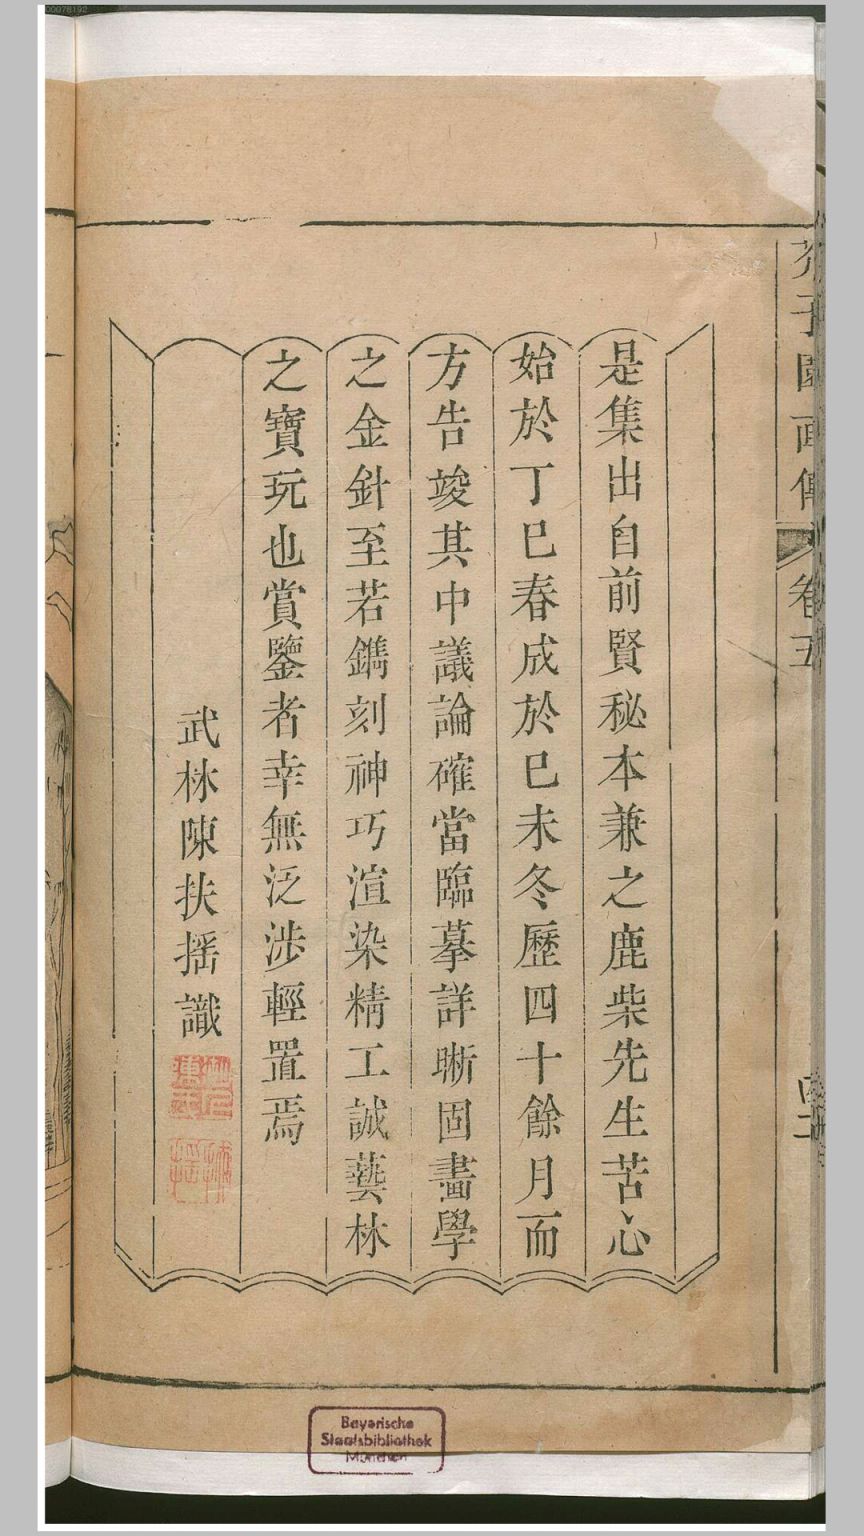 芥子園画傳 卷五
是集出自前賢秘本兼之鹿柴先生苦心
始於丁巳春成於巳未冬歷四十餘月而
方告竣其中議論確當臨摹詳晣固畫學
之金針至若鐫刻神巧渲染精工誠藝林
之寶玩也賞鑒者幸無泛涉輕置焉
武林陳扶摇識
Bayerische
Staatsbibliothek
München